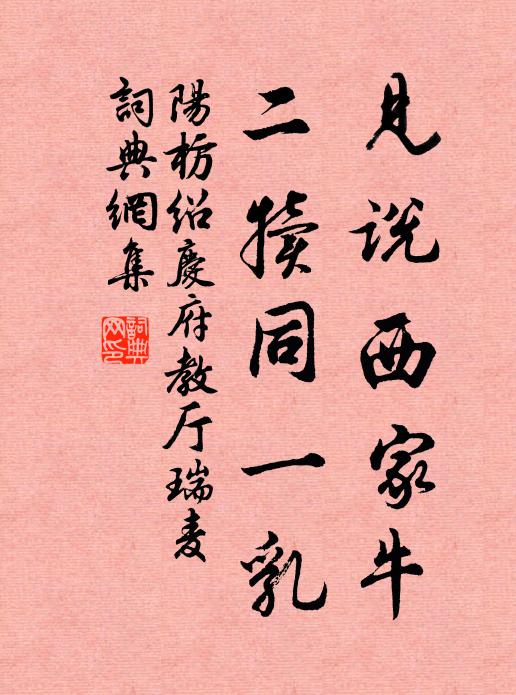 見説西家牛
二犢同一乳
陽枋紹慶府教厅瑞麦
詞典網集
詞典網印